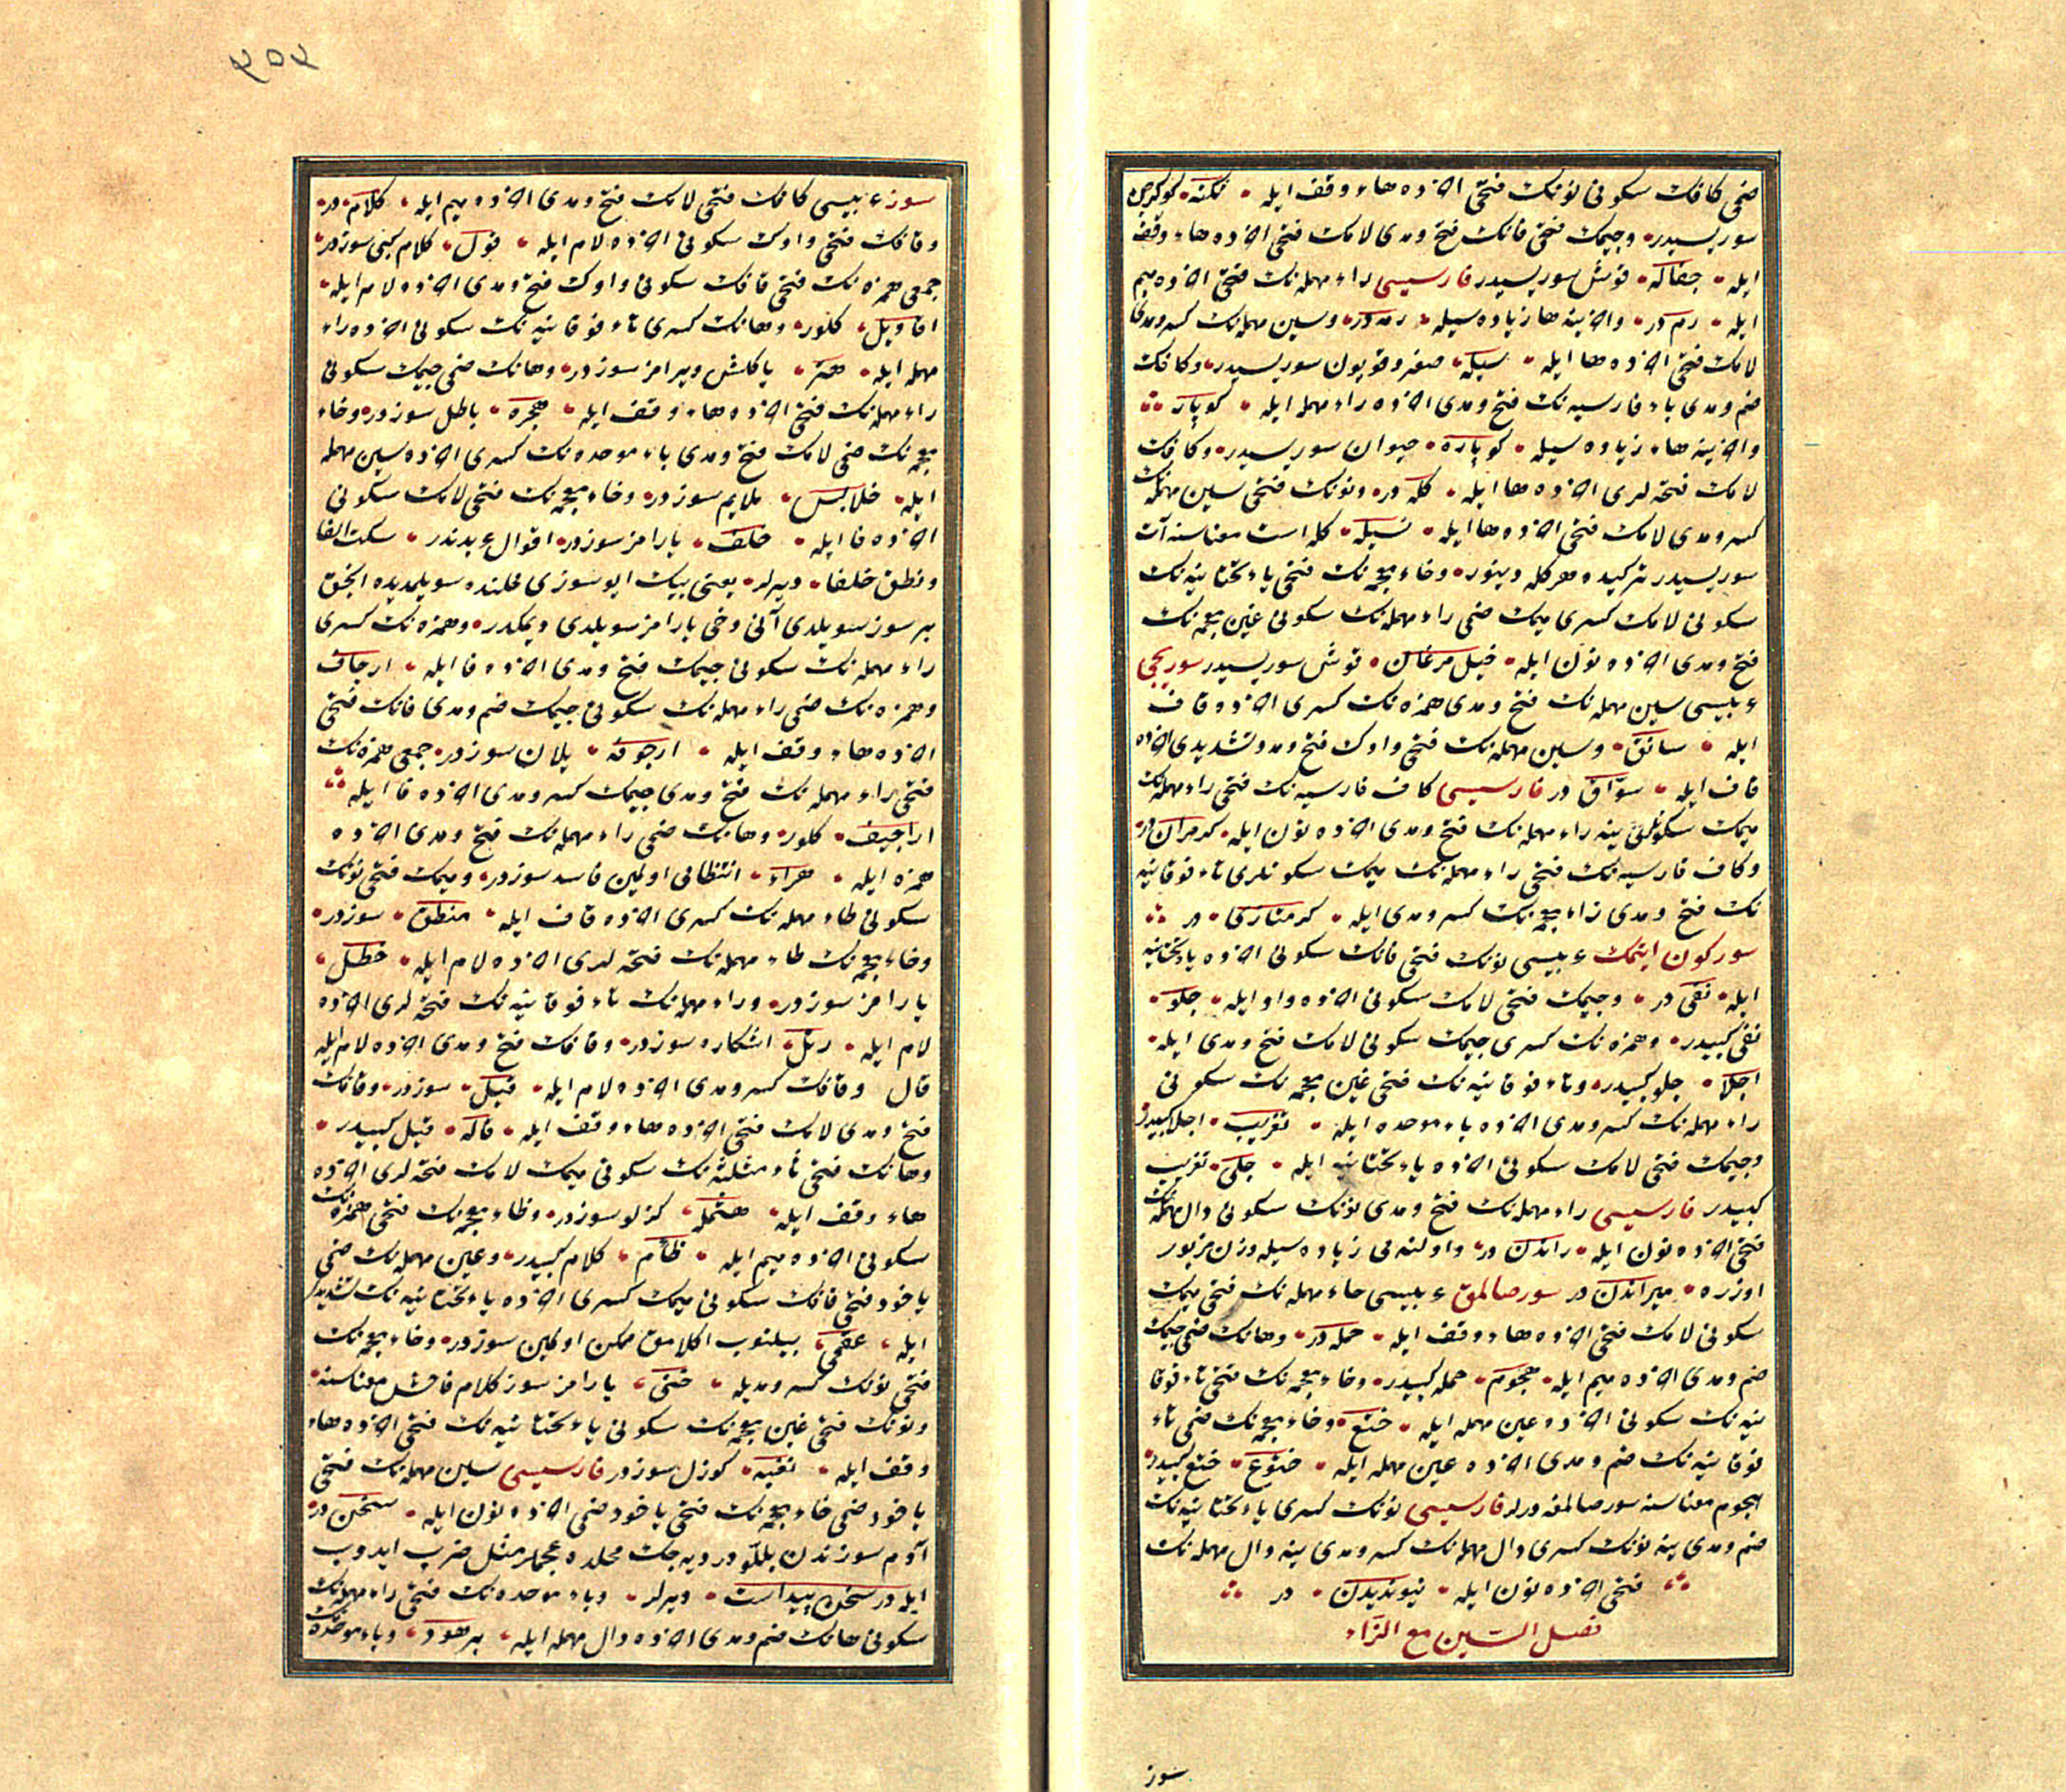 ضمی کافک سکونی نونک فتحی آخرده هاء وقف ایله نکنه کوکرجن
سوریسیدر وجیمک فتحی فانک فتح ومدی لامک فتحی آخرده هاء وقف
ایله جفاله قوش سوریسیدر فارسیسی راء مهمله نک فتحی آخرده میم
ایله رم در وآخرینه ها زیاده سیله رمه در وسین مهمله نک کسر ومدی
لامک فتحی آخرده ها ایله سیله صغر وقویون سوریسیدر وکافک
ضم ومدی باء فارسیه نک فتح ومدی آخرده راء مهمله ایله کوپار
وآخرینه هاء زیاده سیله کوپاره حیوان سوریسیدر وکافک
لامک فتحه لری آخرده ها ایله کله در ونونک فتحی سین مهمله نک
کسر ومدی لامک فتحی آخرده ها ایله نسیله کله است معناسنه آت
سوریسیدر ترکیده هرکله دینور وخاء معجمه نک فتحی یاء تحتانیه نک
سکونی لامک کسری میمک ضمی راء مهمله نک سکونی غین معجمه نک
فتح ومدی آخرده نون ایله خیل مرغان قوش سوریسیدر سوریجی
عربیسی سین مهمله نک فتح ومدی همزه نک کسری آخرده قاف
ایله سائق وسین مهمله نک فتحی واوک فتح ومد وتشدیدی آخرده
قاف ایله سواق در فارسیسی کاف فارسیه نک فتحی راء مهمله نک
میمک سکونلری ینه راء مهمله نک فتح ومدی آخرده نون ایله کرمران در
وکاف فارسیه نک فتحی راء مهمله نک میمک سکونلری تاء فوقانیه
نک فتح ومدی زاء معجمه نک کسر ومدی ایله کرمتازی در
سورکون ایتمک عربیسی نونک فتحی فانک سکونی آخرده یاء تحتانیه
ایله نفی در وجیمک فتحی لامک سکونی آخرده واو ایله جلو
نفی کبیدر وهمزه نک کسری جیمک سکونی لامک فتح ومدی ایله
اجلا جلو کبیدر وتاء فوقانیه نک فتحی غین معجمه نک سکونی
راء مهمله نک کسر ومدی آخرده باء موحده ایله تغریب اجلا کبیدر
وجیمک فتحی لامک سکونی آخرده یاء تحتانیه ایله جلی تغریب
کبیدر فارسیسی راء مهمله نک فتح ومدی نونک سکونی دال مهمله نک
فتحی آخرده نون ایله راندن در واولنه می زیاده سیله وزن مزبور
اوزره میراندن در سور صالمق عربیسی حاء مهمله نک فتحی میمک
سکونی لامک فتحی آخرده هاء وقف ایله حمله در وهانک ضمی جیمک
ضم ومدی آخرده میم ایله هجوم حمله کبیدر وخاء معجمه نک فتحی تاء فوقا
نیه نک سکونی آخرده عین مهمله ایله ختع وخاء معجمه نک ضمی تاء
فوقانیه نک ضم ومدی آخرده عین مهمله ایله ختوع ختع کبیدر
هجوم معناسنه سور صالمغه دیرلر فارسیسی نونک کسری یاء تحتانیه نک
ضم ومدی ینه نونک کسری دال مهمله نک کسر ومدی ینه دال مهمله نک
فتحی آخرده نون ایله نیوندیدن در
فصل السین مع الزاء
سوز
۲۵۲
سوز عربیسی کافک فتحی لامک فتح ومدی آخرده میم ایله کلام در
وقافک فتحی واوک سکونی آخرده لام ایله قول کلام کبی سوزدر
جمعی همزه نک فتحی قافک سکونی واوک فتح ومدی آخرده لام ایله
اقاویل کلور وهانک کسری تاء فوقانیه نک سکونی آخرده راء
مهمله ایله هتر یاکلش ویرامز سوزدر وهانک ضمی جیمک سکونی
راء مهمله نک فتحی آخرده هاء وقف ایله هجره باطل سوزدر وخاء
معجمه نک ضمی لامک فتح ومدی باء موحده نک کسری آخرده سین مهمله
ایله خلابس ملایم سوزدر وخاء معجمه نک فتحی لامک سکونی
آخرده فا ایله خلف یارامز سوزدر اقوال عربدندر سکت الفا
ونطق خلفا دیرلر یعنی بیک ایو سوزی محلنده سویلمدیده انجق
بر سوز سویلدی آنی دخی یارامز سویلدی دیمکدر وهمزه نک کسری
راء مهمله نک سکونی جیمک فتح ومدی آخرده فا ایله ارجاف
وهمزه نک ضمی راء مهمله نک سکونی جیمک ضم ومدی فانک فتحی
آخرده هاء وقف ایله ارجوفه یلان سوزدر جمعی همزه نک
فتحی راء مهمله نک فتح ومدی جیمک کسر ومدی آخرده فا ایله
اراجیف کلور وهانک ضمی راء مهمله نک فتح ومدی آخرده
همزه ایله هراء انتظامی اولمین فاسد سوزدر ومیمک فتحی نونک
سکونی طاء مهمله نک کسری آخرده قاف ایله منطق سوزدر
وخاء معجمه نک طاء مهمله نک فتحه لری آخرده لام ایله خطل
یارامز سوزدر وراء مهمله نک تاء فوقانیه نک فتحه لری آخرده
لام ایله رتل اشکاره سوزدر وقافک فتح ومدی آخرده لام ایله
قال وقافک کسر ومدی آخرده لام ایله قیل سوزدر وقافک
فتح ومدی لامک فتحی آخرده هاء وقف ایله قاله قیل کبیدر
وهانک فتحی ثاء مثلثه نک سکونی میمک لامک فتحه لری آخرده
هاء وقف ایله هثمله کزلو سوزدر وظاء معجمه نک فتحی همزه نک
سکونی آخرده میم ایله ظأم کلام کبیدر وعین مهمله نک ضمی
یاخود فتحی قافک سکونی میمک کسری آخرده یاء تحتانیه نک تشدیدی
ایله عقمی بیلنوب اکلامق ممکن اولمین سوزدر وخاء معجمه نک
فتحی نونک کسر ومدیله خنی یارامز سوز کلام فاحش معناسنه
ونونک فتحی غین معجمه نک سکونی یاء تحتانیه نک فتحی آخرده هاء
وقف ایله نغیه کوزل سوزدر فارسیسی سین مهمله نک فتحی
یاخود ضمی خاء معجمه نک فتحی یاخود ضمی آخرده نون ایله سخن در
آدم سوزندن بللودر دیه جک محلده عجملر مثل ضرب ایدوب
ایله در سخن پیداست دیرلر وباء موحده نک فتحی راء مهمله نک
سکونی هانک ضم ومدی آخرده دال مهمله ایله برهود وباء موحده نک